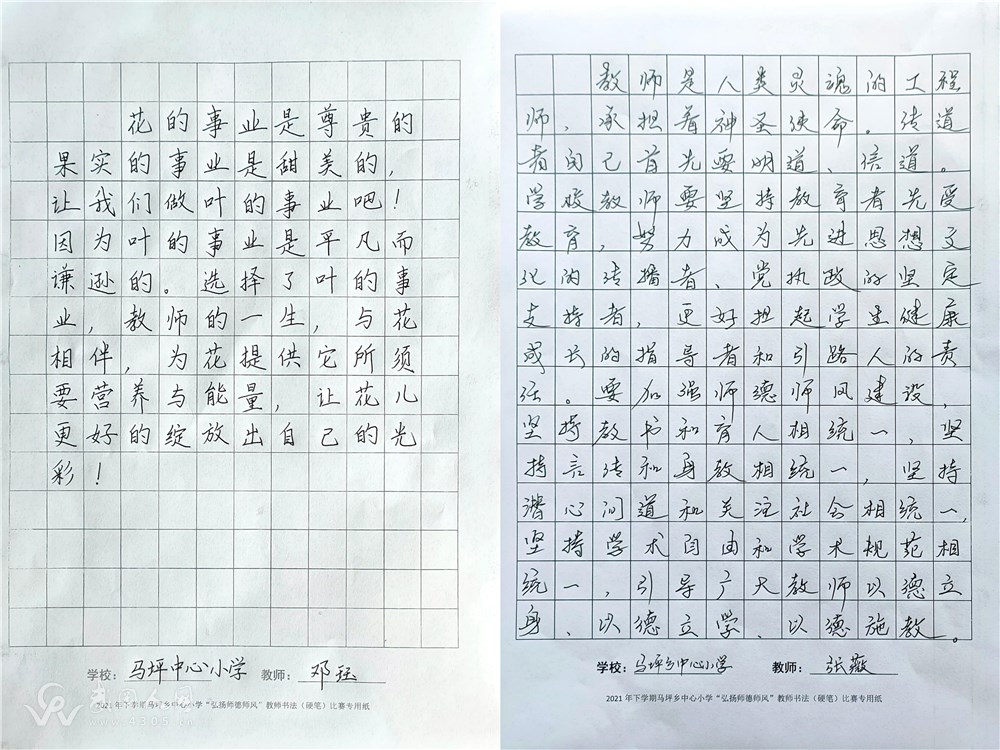 花的事业是尊贵的
果实的事业是甜美的,
让我们做叶的事业吧!
因为叶的事业是平凡而
谦逊的。选择了叶的事
业,教师的一生,与花
相伴,为花提供它所须
要营养与能量,让花儿
更好的绽放出自己的光
彩!
学校: 马坪中心小学 教师: 邓
2021年下学期马坪乡中心小学“弘扬师德师风”教师书法(硬笔)比赛专用纸
www.4305.cn
教师是人类灵魂的工程
师、承担着神圣使命。传道
者自己首先要明道、信道。
学校教师要坚持教育者先受
教育,努力成为先进思想文
化的传播者、党执政的坚定
支持者,更好担起学生健康
成长的指导者和引路人的责
任。要加强师德师风建设,
坚持教书和育人相统一,坚
持言传和身教相统一,坚持
潜心问道和关注社会相统一,
坚持学术自由和学术规范相
统一,引导广大教师以德立
身、以德立学、以德施教。
学校: 马坪乡中心小学 教师: 张薇
2021年下学期马坪乡中心小学“弘扬师德师风”教师书法(硬笔)比赛专用纸